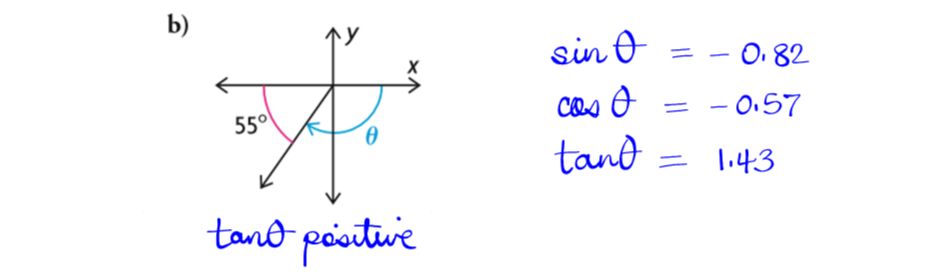 b)
y
x
55°
θ
tanθ positive
sinθ = - 0.82
cos θ = - 0.57
tanθ = 1.43